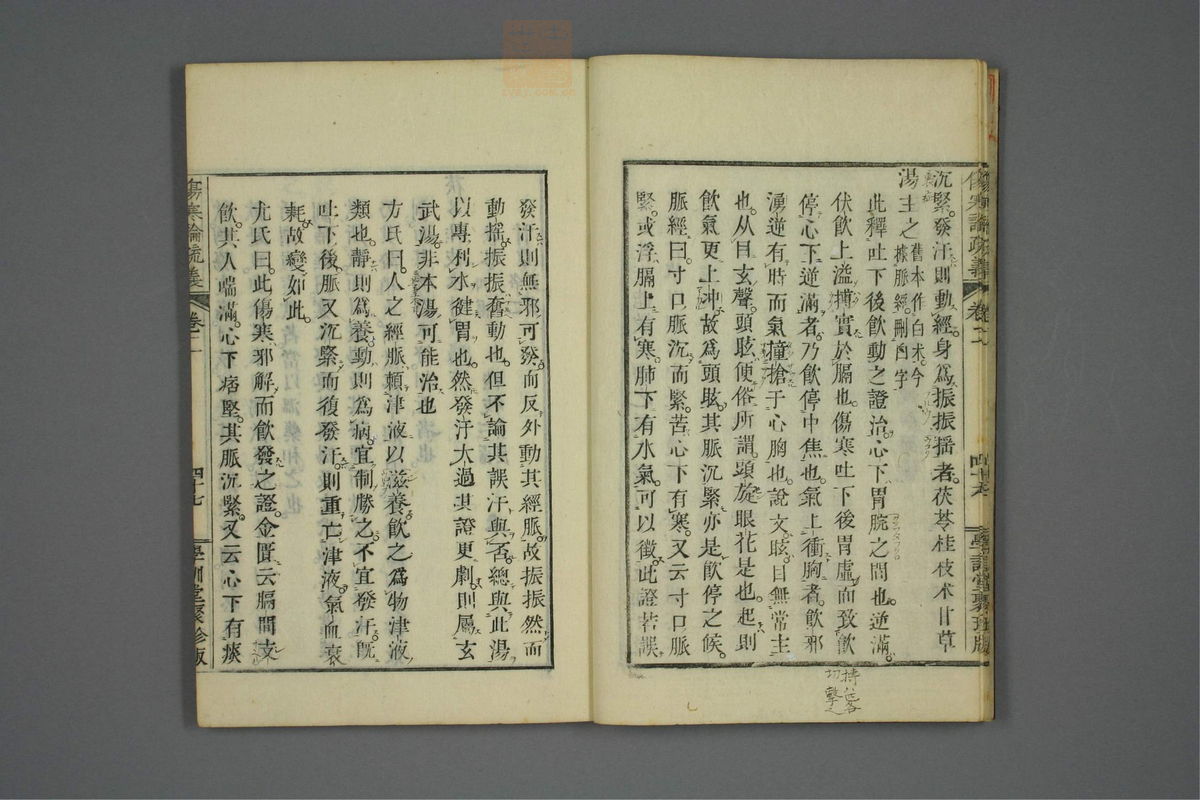 沉緊。發汗則動經。身爲振振搖者。茯苓桂枝朮甘草
湯主之 舊本作白朮。今
據脈經。刪白字
此釋吐下後飮動之證治。心下胃脘之間也。逆滿。
伏飮上溢。搏實於膈也。傷寒吐下後。胃虛而致飮
停心下逆滿者。乃飮停中焦也。氣上衝胸者。飮邪
湧逆有時而氣撞搶于心胸也。說文。眩。目無常主
也。从目玄聲。頭眩便俗所謂頭旋眼花是也。起則
飮氣更上冲。故爲頭眩。其脈沉緊。亦是飮停之候。
脈經曰。寸口脈沉而緊。苦心下有寒。又云。寸口脈
緊。或浮。膈上有寒。肺下有水氣。可以徵。此證若誤
傷寒論疏義
卷二
學訓堂聚珍版
發汗。則無邪可發。而反外動其經脈。故振振然而
動搖。振振奮動也。但不論其誤汗與否。總與此湯
以專利水健胃也。然發汗大過。其證更劇。則屬玄
武湯。非本湯可能治也
方氏曰。人之經脈。賴津液以滋養。飮之爲物。津液
類也。靜則爲養。動則爲病。宜制勝之。不宜發汗。既
吐下後。脈又沉緊。而復發汗。則重亡津液。氣血衰
耗。故變如此。
尤氏曰。此傷寒邪解而飮發之證。金匱云。膈間支
飮。其人喘滿。心下痞堅。其脈沉緊。又云。心下有痰
傷寒論疏義
卷二
四十七
學訓堂聚珍版